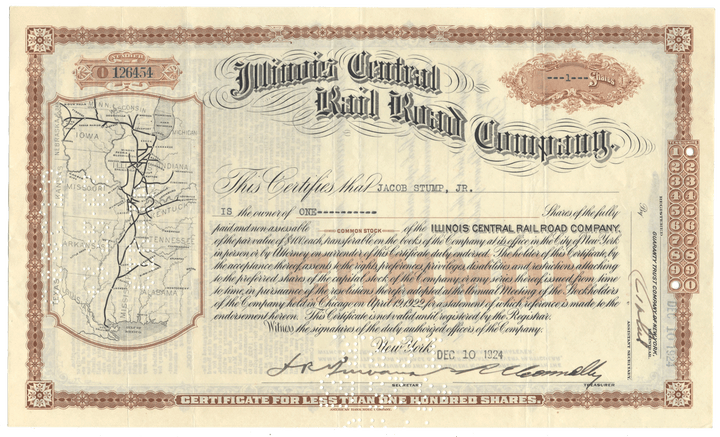 NUMBER
O 126454
Illinois Central
Rail Road
Company.
---1---
Shares
MINN.
WISCONSIN
MICHIGAN
IOWA
NEBRASKA
INDIANA
MISSOURI
KANSAS
KENTUCKY
TENNESSEE
ARKANSAS
ALABAMA
This Certifies that JACOB STUMP, JR.
IS the owner of ONE----------- Shares of the fully
paid and non assessable COMMON STOCK of the ILLINOIS CENTRAL RAIL ROAD COMPANY,
of the par value of $100 each, transferable on the books of the Company at its office in the City of New York
in person or by Attorney on surrender of this Certificate duly endorsed. The holder of this Certificate, by
the acceptance thereof assents to the rights, preferences, privileges, disabilities and restrictions attaching
to the preferred shares of the capital stock of the Company, or any series thereof issued from time
to time, in pursuance of the resolutions therefor adopted at the Annual Meeting of the Stockholders
of the Company held in Chicago on April 19, 1922, for a statement of which reference is made to the
endorsement hereon. This Certificate is not valid until registered by the Registrar.
Witness the signatures of the duly authorized officers of the Company.
New York DEC 10 1924
TREASURER
CERTIFICATE FOR LESS THAN ONE HUNDRED SHARES.
COUNTERSIGNED
GUARANTY TRUST COMPANY OF NEW YORK,
By
ASSISTANT SECRETARY.
DEC 10 1924
1 1
2 2
3 3
4 4
5 5
6 6
7 7
8 8
9 9
0 0